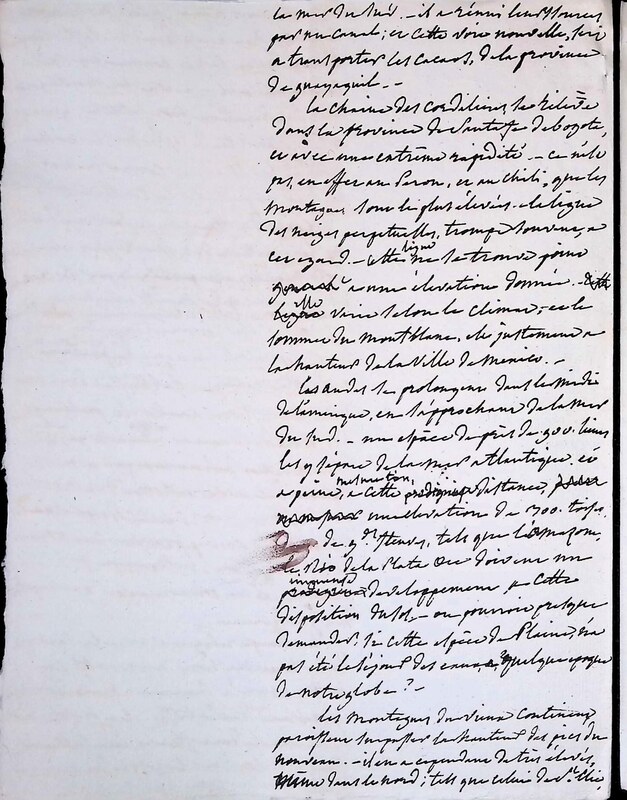 la mer du Sud. – il a réuni leurs sources
par un canal; et cette voie nouvelle, sert
a transporter les cacaos, de la province
de guayaquil. –
la chaine des cordilieres se relève
dans la province de Santafe de bogota,
et avec une extrême rapidité – ce n'est
pas, en effet au Perou, et au Chili, que les
montagnes sont le plus élevées. – la ligne
des neiges perpetuelles, trompe souvent, a
cet egard. – cette ligne ne se trouve point
a une élevation donnée. –
elle varie selon le climat; et le
sommet du montblanc, est justement a
la hauteur de la ville de Mexico. –
les andes se prolongent dans le midi
de l'amerique, en s'approchant de la mer
du Sud. – un espace de près de 900. lieues
les y sépare de la mer atlantique. et
a peine, a cette distance,
une élevation de 700. toises.
de gds. fleuves, tels que l'amazone,
le Rio de la Plata doivent un
immense développement a cette
disposition du sol, – on pourroit presque
demander, si cette espèce de Plaine, n'a
pas été le sejour des eaux, a quelque epoque
de notre globe? –
les montagnes du vieux Continent
paroissent surpasser la hauteur des pics du
nouveau. – il en a cependant de très élevés,
même dans le nord; tels que celui de St. Elie,